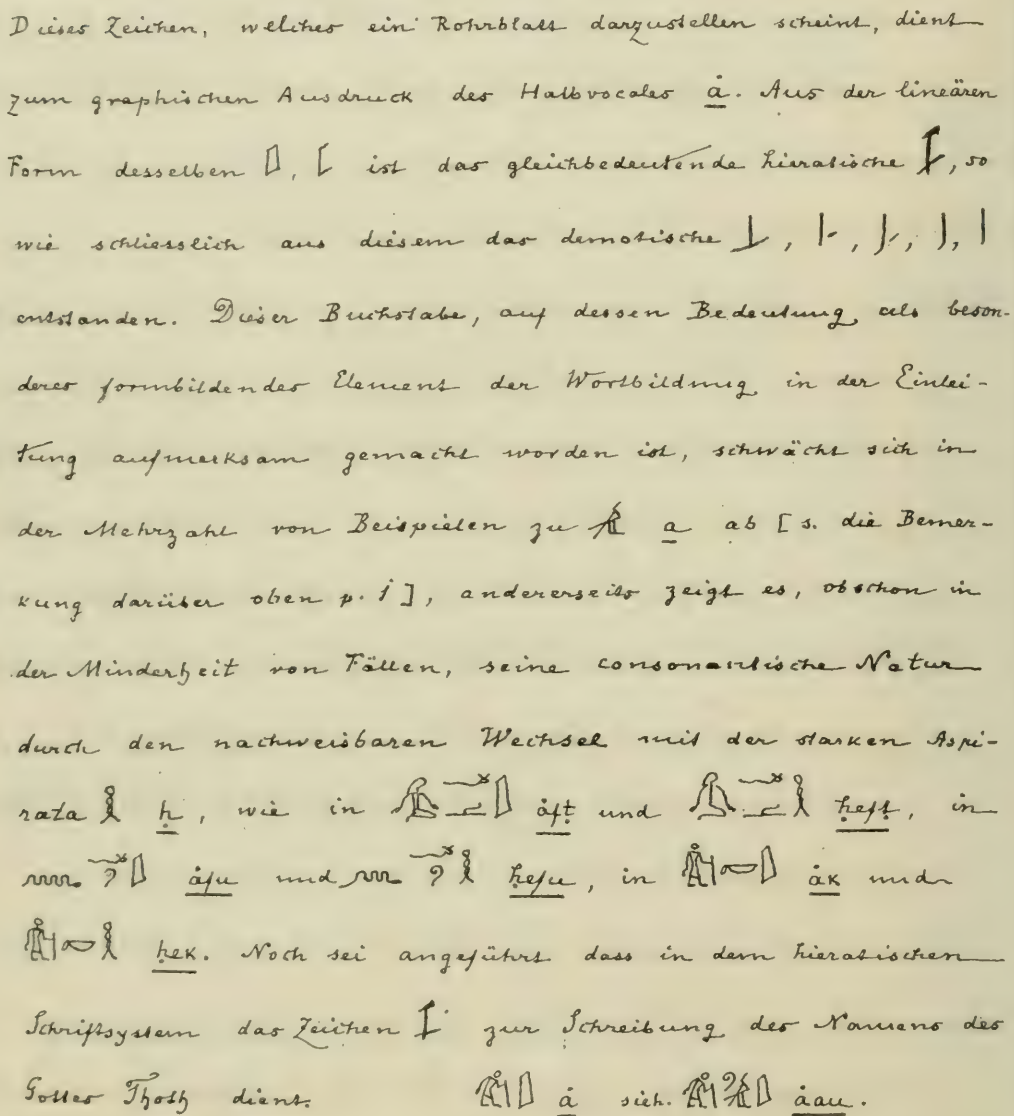 Dieses Zeichen, welches ein Rohrblatt darzustellen scheint, dient
zum graphischen Ausdruck des Halbvocales ȧ. Aus der lineären
Form desselben 𓇋, [ ist das gleichbedeutende hieratische, so
wie schliesslich aus diesem das demotische
entstanden. Dieser Buchstabe, auf dessen Bedeutung als beson-
deres formbildendes Element der Wortbildung in der Einlei-
tung aufmerksam gemacht worden ist, schwächt sich in
der Mehrzahl von Beispielen zu 𓄿 a ab [s. die Bemer-
kung darüber oben p. 1], andererseits zeigt es, obschon in
der Minderheit von Fällen, seine consonantische Natur
durch den nachweisbaren Wechsel mit der starken Aspi-
rata 𓎛 ḥ, wie in ȧfṭ und ḥefṭ, in
ȧfu und ḥefu, in ȧk und
ḥek. Noch sei angeführt dass in dem hieratischen
Schriftsystem das Zeichen zur Schreibung des Namens des
Gottes Thoth dient. ȧ sieh. ȧau.